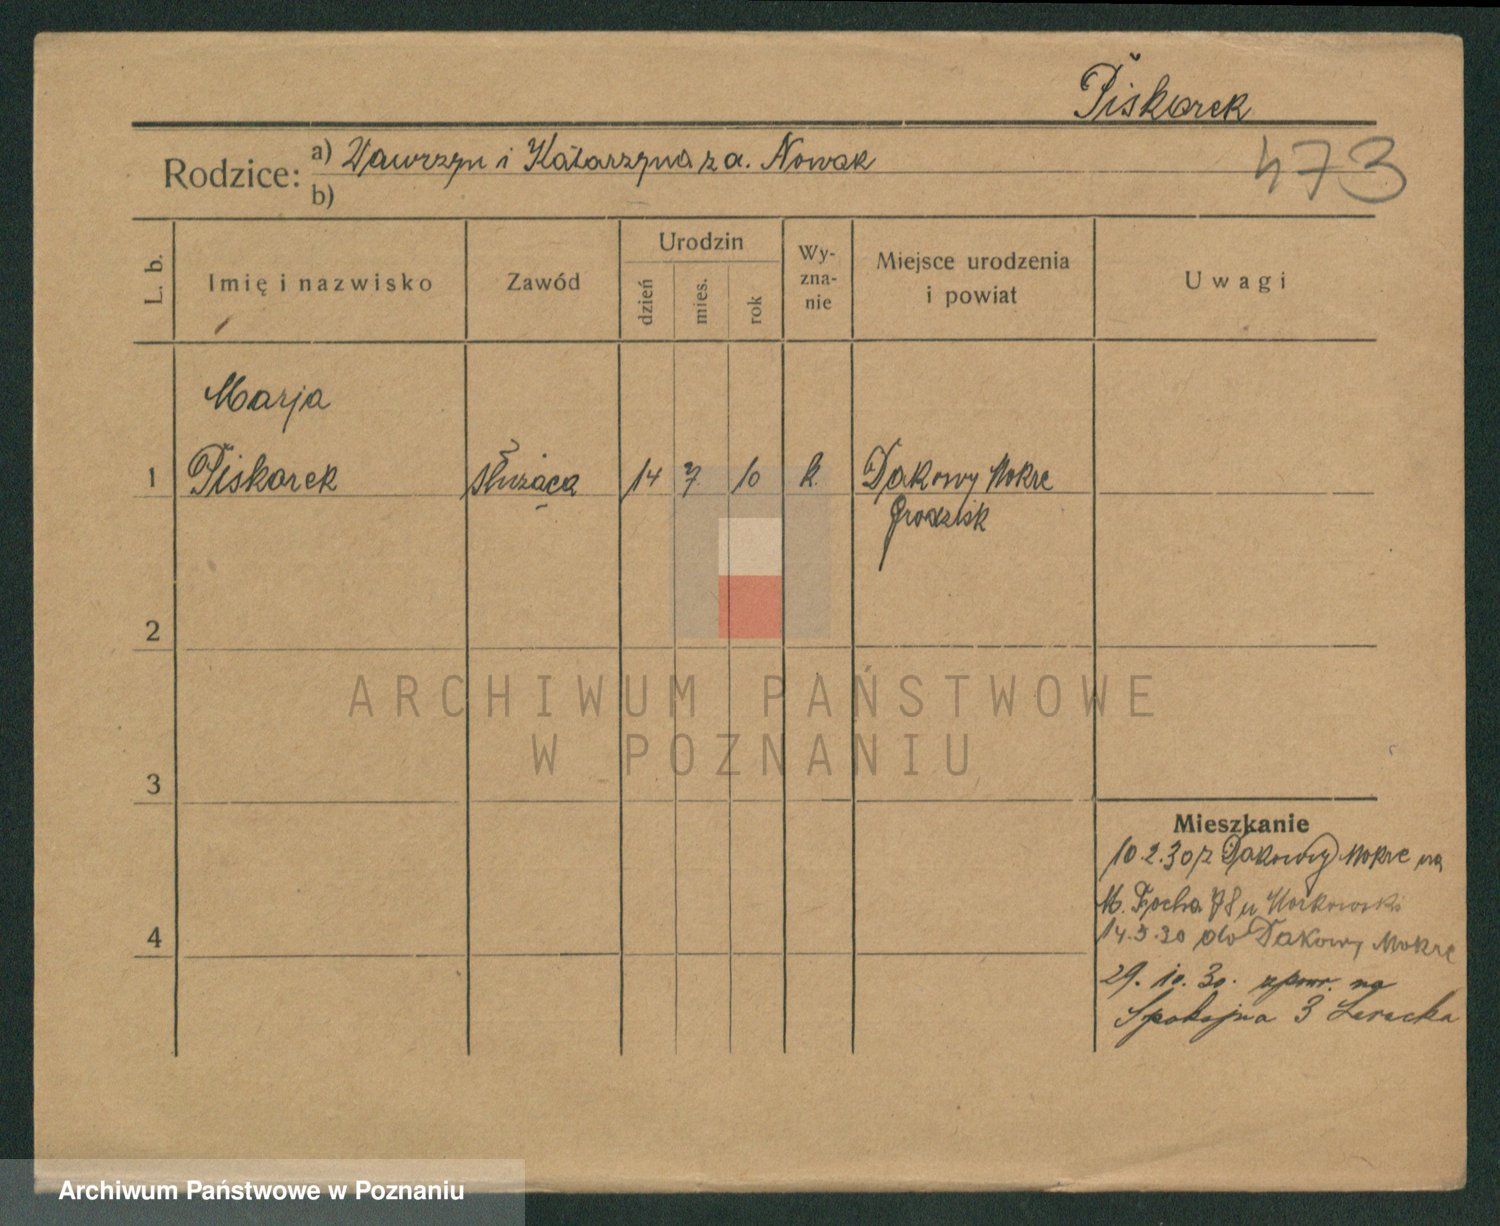 Piskorek
473
Rodzice: a) Wawrzyn i Katarzyna z a. Nowak
b)
L. b.
Imię i nazwisko
Zawód
Urodzin
dzień
mies.
rok
Wy-
zna-
nie
Miejsce urodzenia
i powiat
Uwagi
Marja
1 Piskorek służąca 14 7 10 k. Dakowy Mokre
Grodzisk
2
3
4
Mieszkanie
10.2.30 z Dakowy Mokre na
M. Focha 78 u
14.5.30 do Dakowy Mokre
29.10.30. spowr. na
Spokojna 3
ARCHIWUM PAŃSTWOWE
W POZNANIU
Archiwum Państwowe w Poznaniu